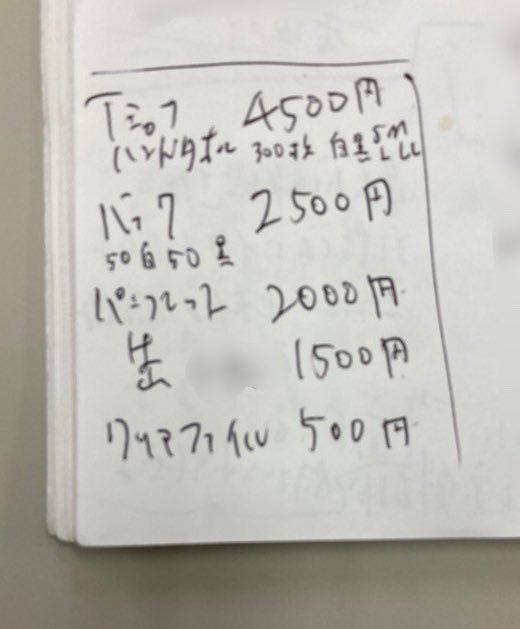 Tシャツ 4500円
ハンドタオル 300枚 白黒 S M L LL
バッグ 2500円
50白 50黒
パンフレット 2000円
1500円
クリアファイル 500円